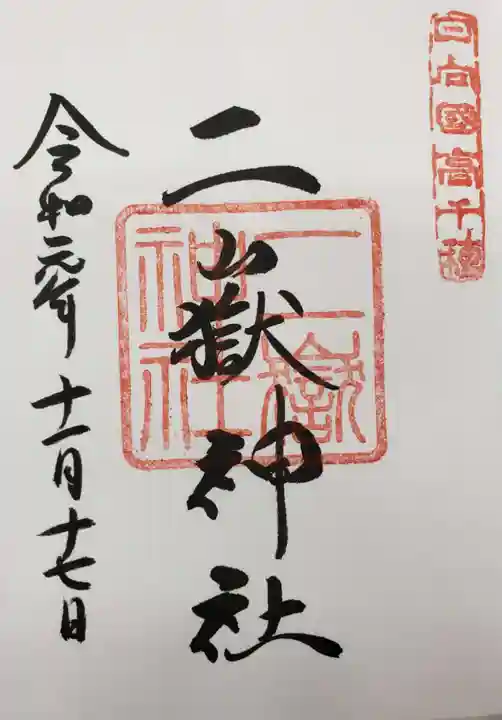 日向國高千穂
二嶽神社
二嶽神社
令和元年十一月十七日